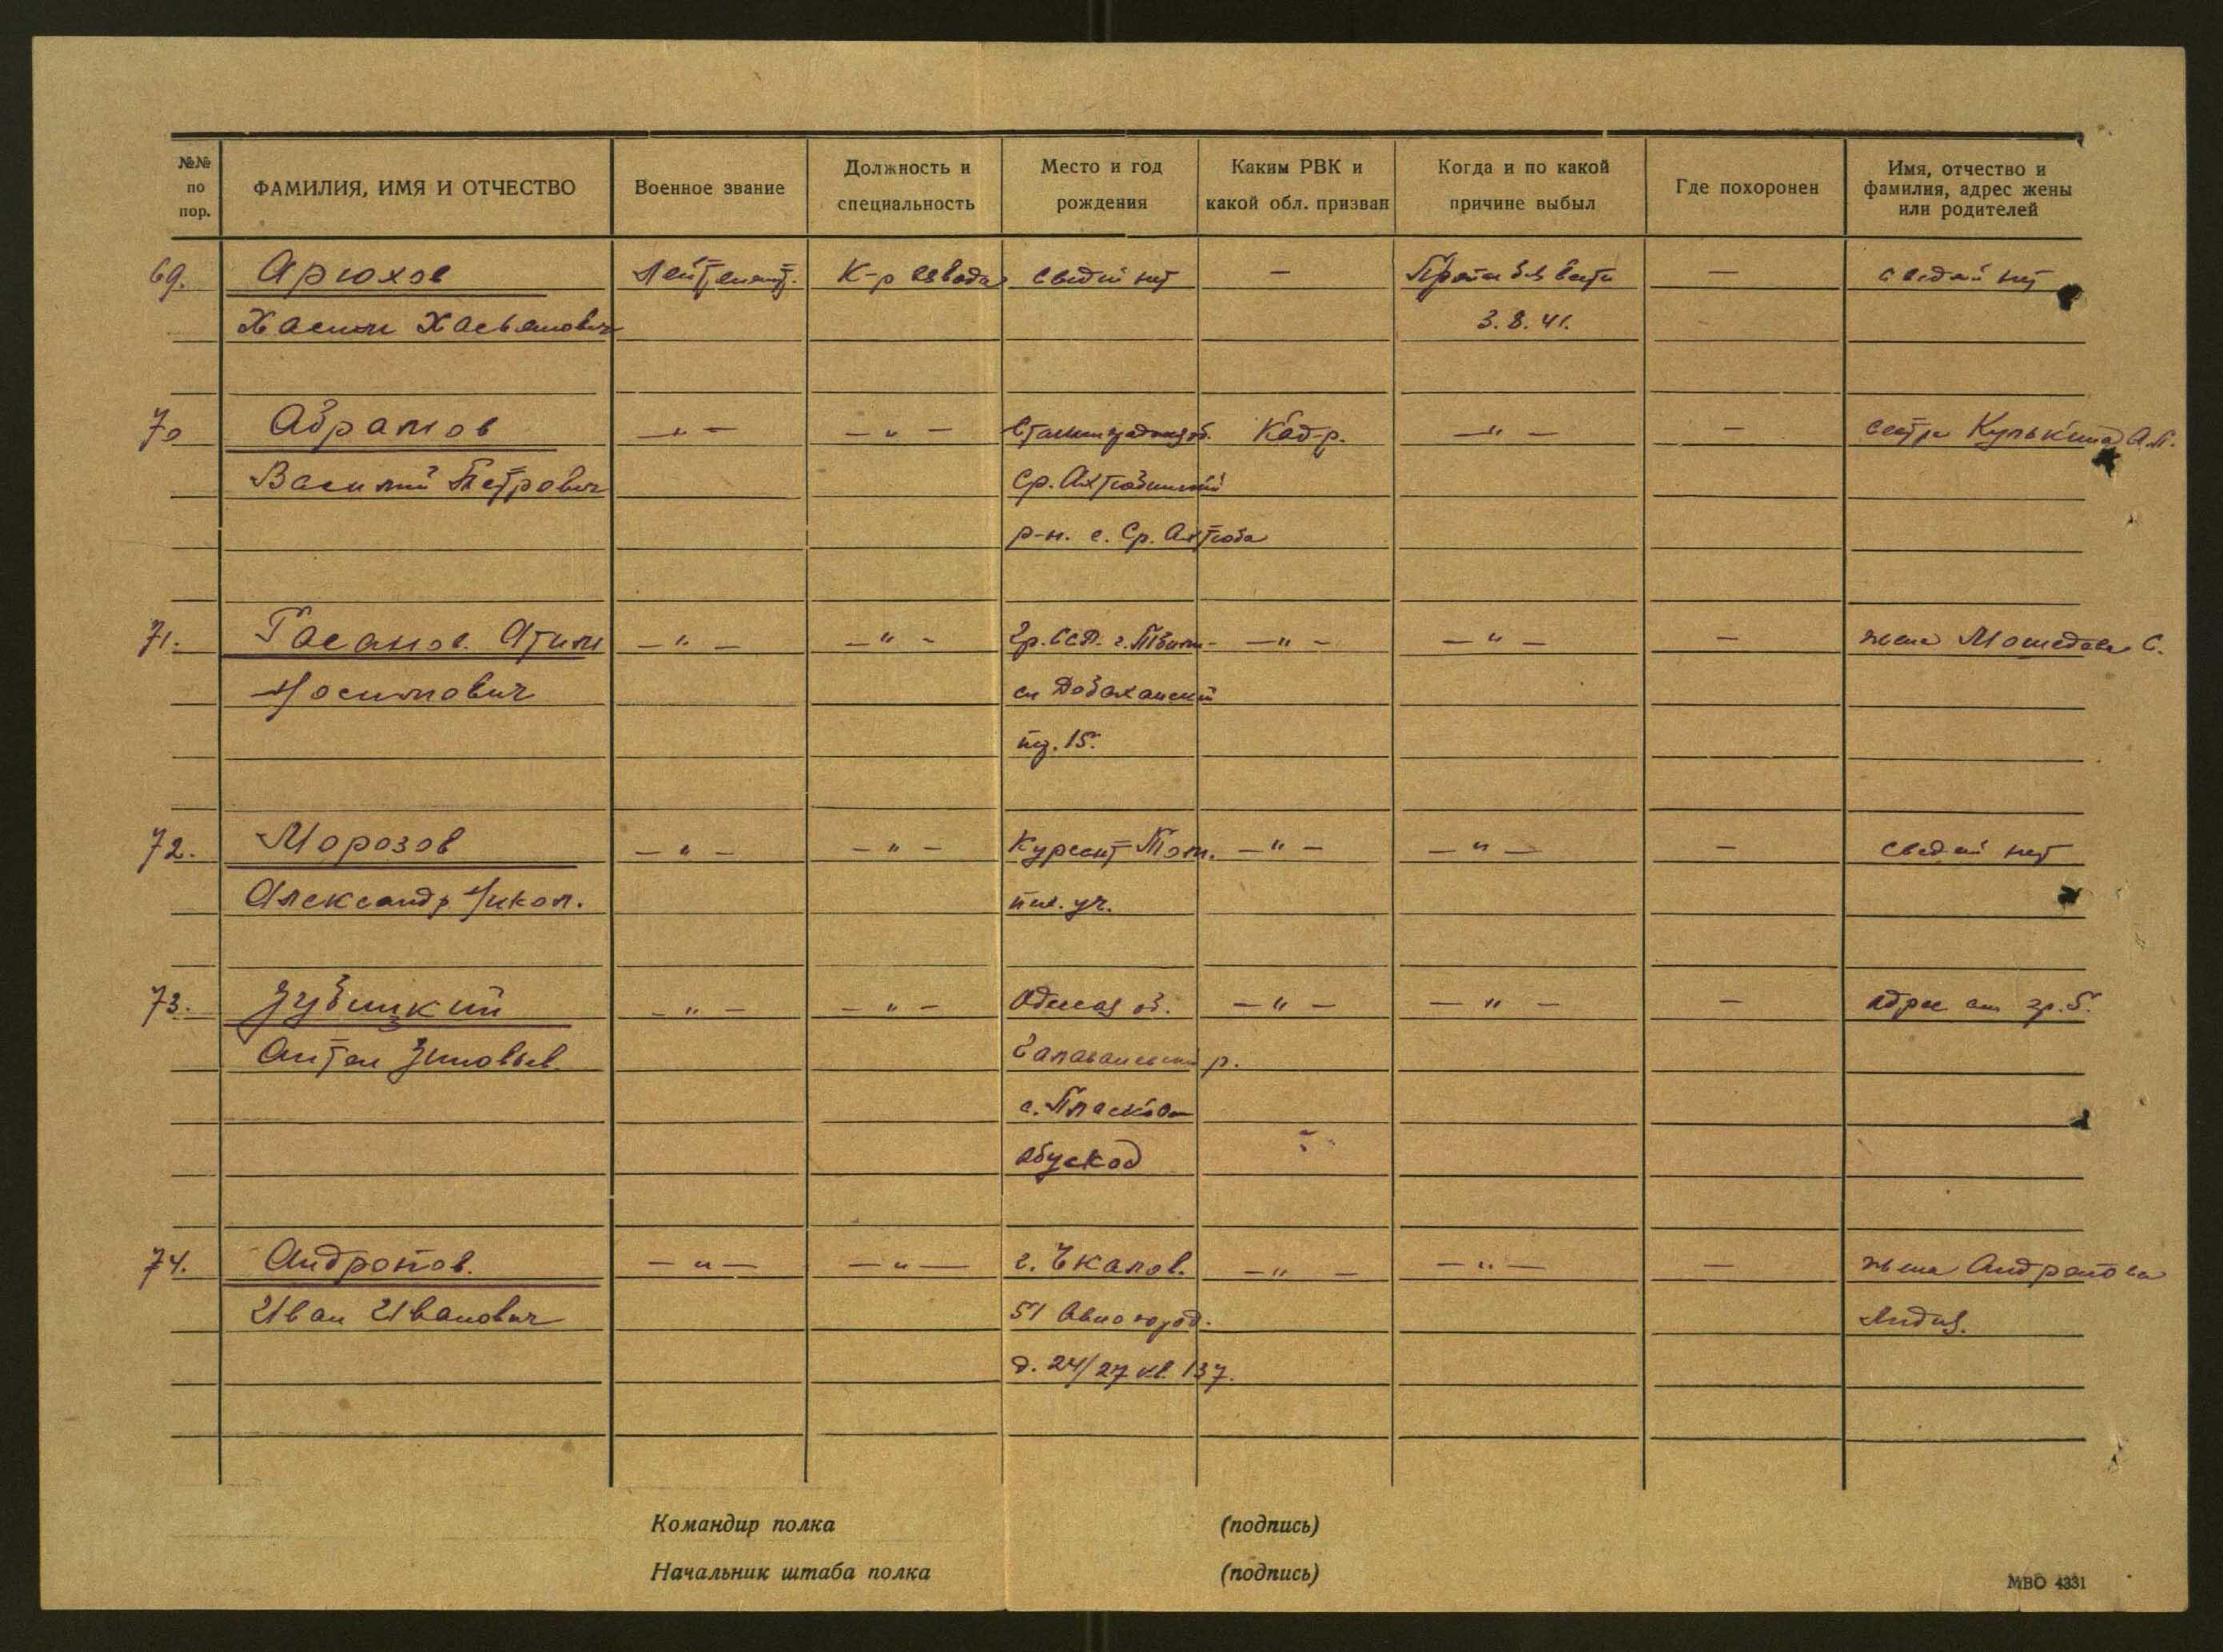 №№ по пор.
ФАМИЛИЯ, ИМЯ И ОТЧЕСТВО
Военное звание
Должность и специальность
Место и год рождения
Каким РВК и какой обл. призван
Когда и по какой причине выбыл
Где похоронен
Имя, отчество и фамилия, адрес жены или родителей
69. Арюхов Лейтенант. К-р взвода сведий нет — Пропал без вести — сведий нет
Хасим Хасьянович 3.8.41.
70 Абрамов —"— —"— Сталинградская об. Кадр. —"— — сестра Кулькина А.П.
Василий Петрович Ср. Ахтюбинский
р-н. с. Ср. Ахтюба
71. Гасанов. Агили —"— —"— Гр. ССР. г. Тбили- —"— —"— — жена С.
си
пер. 15.
72. Морозов —"— —"— Курсант Том. —"— —"— — сведий нет
Александр Никол. пех. уч.
73. Зубицкий —"— —"— Одесская об. —"— —"— — гр. 5.
Антон Зиновьев. р.
с.
74. Андропов. —"— —"— г. Чкалов. —"— —"— — жена Андропова
Иван Иванович 51 Авиагород. Лидия.
д. 24/27 кв. 137.
Командир полка (подпись)
Начальник штаба полка (подпись)
МВО 4331